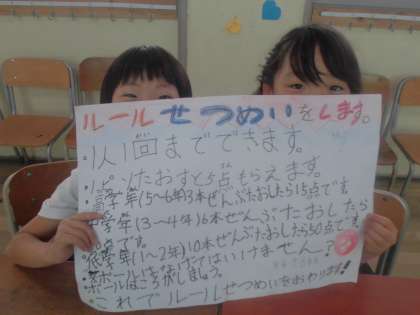 ルールせつめいをします。
・1人1回までできます。
・1ピンたおすと5点もらえます。
・高学年(5~6年)3本ぜんぶたおしたら15点です
・中学年(3~4年)6本ぜんぶたおしたら
点です。
・低学年(1~2年)10本ぜんぶたおしたら50点です
・ボールはなげてはいけません?
・ボールはころがしましょう。
これでルールせつめいをおわります!